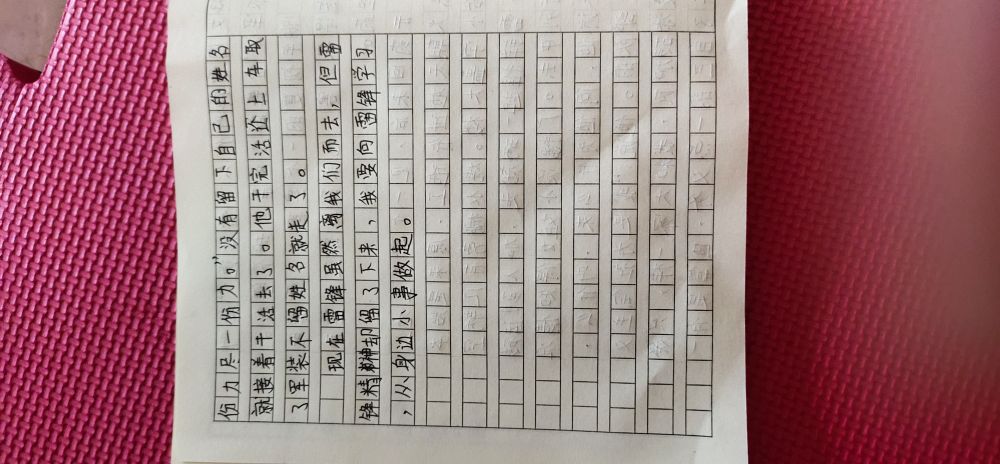 份力尽一份力。”没有留下自己的姓名
就接着干活去了。他干完活还上车取
了军装不留姓名就走了。
现在雷锋虽然离我们而去，但雷
锋精神却留了下来，我要向雷锋学习
，从身边小事做起。